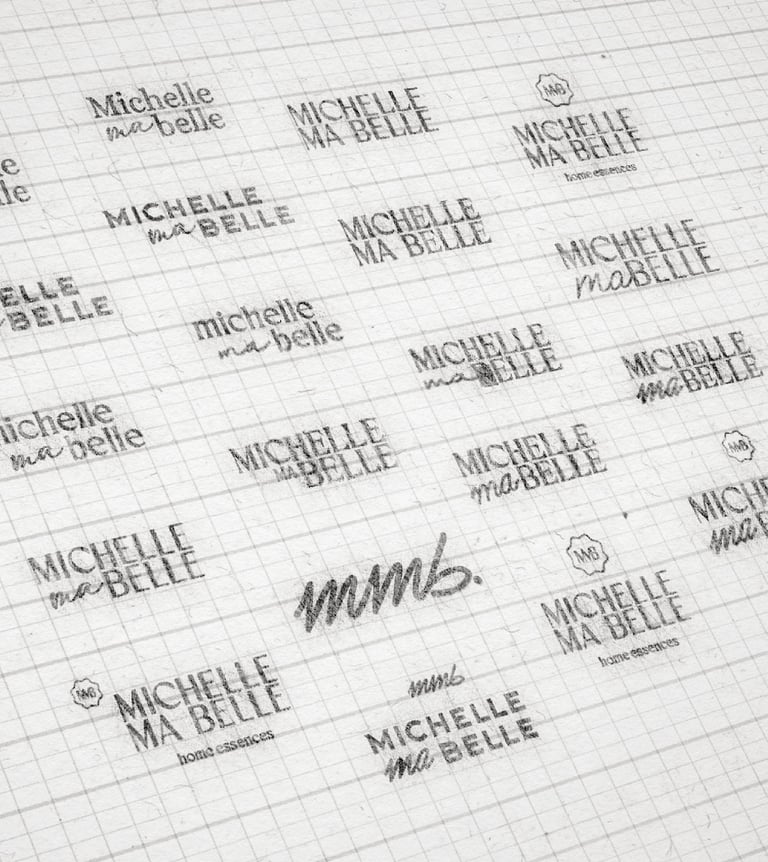 Michelle
ma belle
MICHELLE
MA BELLE
MB
MICHELLE
MA BELLE
home essences
MICHELLE
ma BELLE
MICHELLE
MA BELLE
MICHELLE
ma BELLE
ELLE
BELLE
michelle
ma belle
MICHELLE
ma BELLE
MICHELLE
ma BELLE
ichelle
ma belle
MICHELLE
MA BELLE
MICHELLE
ma BELLE
MICHELLE
ma BELLE
mmb.
MICHELLE
MA BELLE
home essences
MICHELLE
MA BELLE
home essences
mmb
MICHELLE
ma BELLE